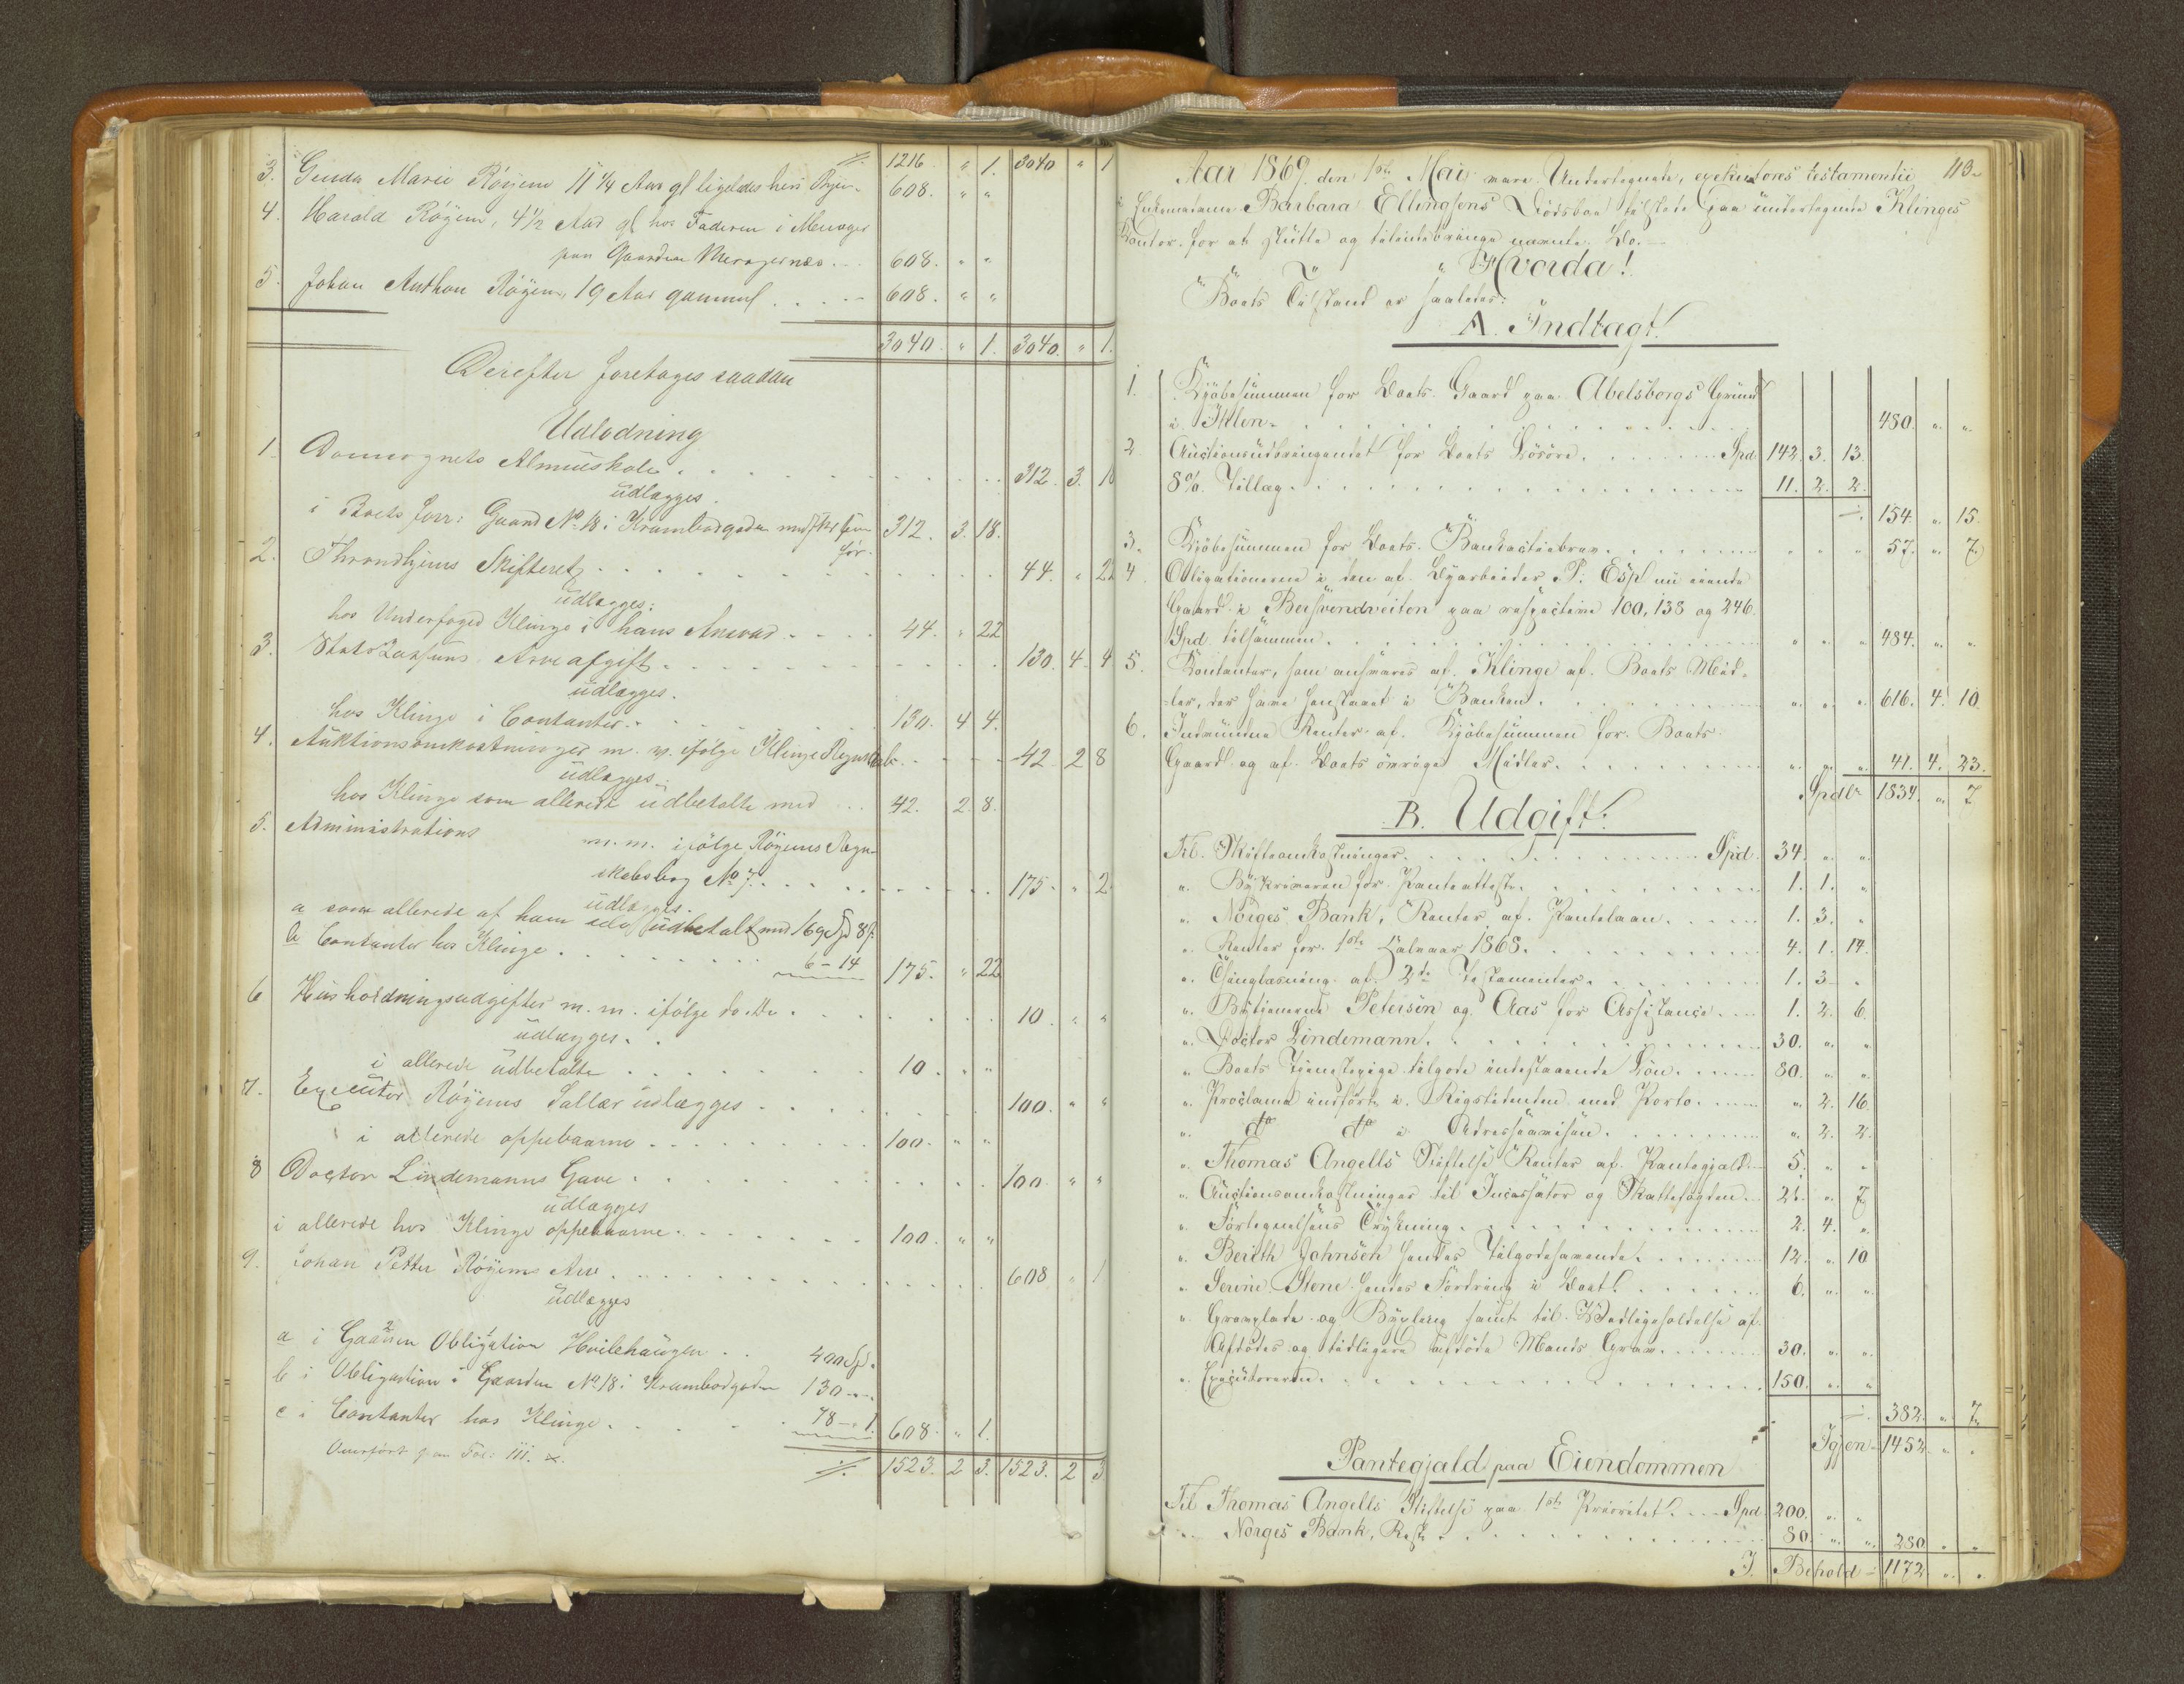 ÷ 1216 " 1. 3040 " 1
3. Gunda Marie Röyem 11 1/4 Aar gl ligeledes hos Röyem 608. " "
4. Harald Röyem, 4 1/2 Aar gl hos Faderen i Merager
paa Gaarden Meragernæs. 608. " "
5. Johan Anthon Röyem, 19 Aar gammel 608. " "
3040. " 1. 3040. " 1.
Derefter foretages saadan
Udlodning
1. Domsognets Almueskole 312. 3. 18
udlægges.
i Boets forr: Gaard No 18 i Krambodgaden 312. 3. 18.
2. Throndhjems Skifteret 44. " 22
udlægges:
hos Underfoged Klinge i hans Ansvar 44. " 22
3. Statskassens Arveafgift 130. 4. 4
udlægges.
hos Klinge i Contanter 130. 4 4.
4. Auktionsomkostninger m. v. ifölge Klinges Regnskab 42 2 8
udlægges.
hos Klinge som allerede udbetalte med 42. 2. 8.
5. Administrations m. m. ifölge Röyems Regn-
skabsbog No 7 175. " 22
udlægges.
a som allerede af ham udbetalt med 169 Spd 8 s.
b Contanter hos Klinge 6 - 14 175. " 22
6 Husholdningsudgifter m. m. ifölge do. do. 10. " "
udlægges.
i allerede udbetalte 10. " "
7. Executor Röyems Sallær udlægges 100. " "
i allerede oppebaarne 100. " "
8 Doctor Lindemanns Gave 100. " "
udlægges
i allerede hos Klinge oppebaarne 100. " "
9. Johan Petter Röyems Arv 608 " 1
udlægges
a i Gaarden Obligation Hvilehaugen 400 Spd.
b i Obligation i Gaarden No 18 i Krambodgaden 130 - -
c i Contanter hos Klinge 78 - 1. 608. " 1.
Overfört paa Fol: 111.
÷ 1523. 2 3. 1523. 2 3
113.
Aar 1869 den 1ste Mai vare Undertegnede, exekutores testamentii
i Enkemadame Barbara Ellingsens Dödsbo tilstede paa undertegnede Klinges
Kontor for at slutte og tilendebringe nævnte Bo.
Hvorda!
Boets Tilstand er saaledes:
A. Indtægt!
1. Kjöbesummen for Boets Gaard paa Abelsborgs Grund
i Ihlen 480. " "
2. Auctionsudbringendet for Boets Lösöre Spd. 142. 3. 13.
8 % Tillæg 11. 2. 2.
÷ 154. " 15.
3. Kjöbesummen for Boets Bankactiebrev " " " 57. " 7.
4. Obligationerne i den af Byarbeider P: Espl nu eiende
Gaard i Bersvendveiten paa respective 100, 138 og 246.
Spd. tilsammen " " " 484. " "
5. Kontanter, som ansvares af Klinge af Boets Mid-
ler, der have henstaaet i Banken " " " 616. 4. 10
6. Indvundne Renter af Kjöbesummen for Boets
Gaard og af Boets övrige Midler " " " 41. 4. 23.
Spdlr 1834. " 7
B. Udgift!
Til Skifteomkostninger Spd. 34. " "
" Byskriveren for Panteattest 1. 1. "
" Norges Bank, Renter af Pantelaan 1. 3. "
" Renter for 1ste Halvaar 1868. 4. 1. 14.
" Thinglæsning af 2de Testamenter 1. 3 "
" Bytjenerne Petersen og Aas for Assistance 1. 2. 6.
" Doctor Lindemann 30. " "
" Boets Tjenestepige tilgode indestaaende Lön 80. " "
" Proclama indfört i Rigstidenden med Porto " 2. 16.
" do do i Adresseavisen " 2. 2.
" Thomas Angells Stiftelse Renter af Pantegjæld 5. " "
" Auctionsomkostninger til Incassator og Skattefogden 21. " 7.
" Förtegnelsens Trykning 2. 4. "
" Bereth Johnsen hendes Tilgodehavende 12. " 10
" Serine Stene hendes Fordring i Boet! 6. " "
" Gravplade og Bylæg samt til Vedligeholdelse af
Afdödes og tidligere afdöde Mands Grav 30. " "
" Executorerne 150. " "
÷ 382. " 7.
Igjen 1452 " "
Pantegjæld paa Eiendommen
Til Thomas Angells Stiftelse paa 1ste Prioritet! Spd. 200. " "
" Norges Bank, Rest 80. " " 280 " "
I Behold 1172 " "